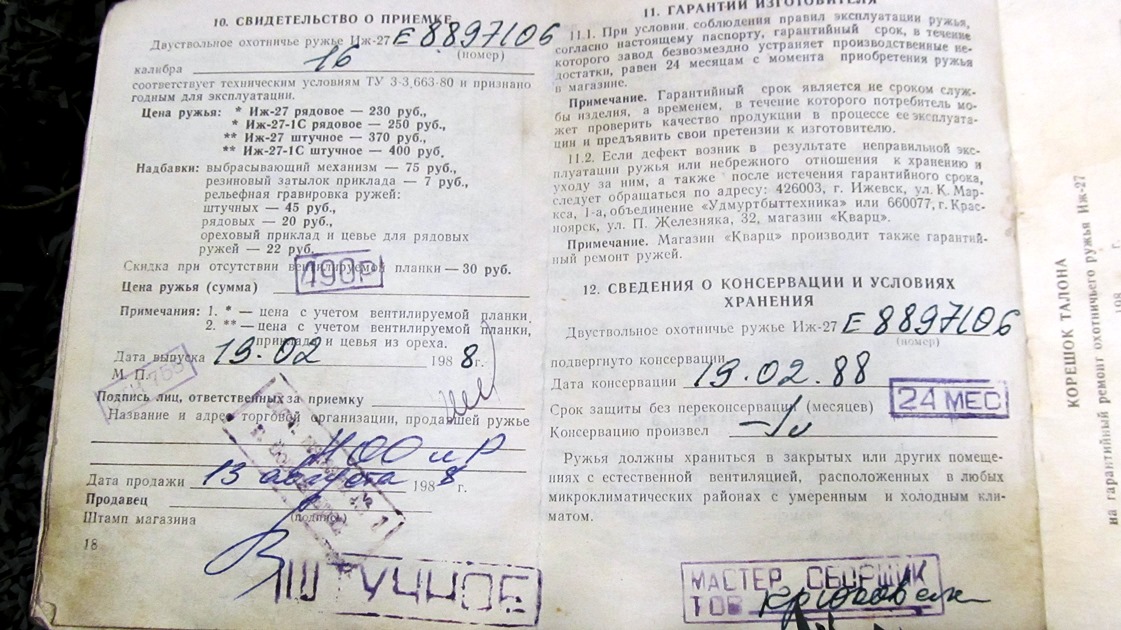 10. СВИДЕТЕЛЬСТВО О ПРИЕМКЕ
Двуствольное охотничье ружье Иж-27 Е 8897106
(номер)
калибра 16
соответствует техническим условиям ТУ 3-3.663-80 и признано
годным для эксплуатации.
Цена ружья: * Иж-27 рядовое — 230 руб.,
* Иж-27-1С рядовое — 250 руб.,
** Иж-27 штучное — 370 руб.,
** Иж-27-1С штучное — 400 руб.
Надбавки: выбрасывающий механизм — 75 руб.,
резиновый затылок приклада — 7 руб.,
рельефная гравировка ружей:
штучных — 45 руб.,
рядовых — 20 руб.,
ореховый приклад и цевье для рядовых
ружей — 22 руб.
Скидка при отсутствии вентилируемой планки — 30 руб.
Цена ружья (сумма) 490Р
Примечания: 1. * — цена с учетом вентилируемой планки.
2. ** — цена с учетом вентилируемой планки,
приклада и цевья из ореха.
Дата выпуска 19.02 1988г.
М. П.
Подпись лиц, ответственных за приемку
Название и адрес торговой организации, продавшей ружье
Дата продажи 13 августа 1988 г.
Продавец
(подпись)
Штамп магазина
18
ШТУЧНОЕ
11. ГАРАНТИИ ИЗГОТОВИТЕЛЯ
11.1. При условии соблюдения правил эксплуатации ружья,
согласно настоящему паспорту, гарантийный срок, в течение
которого завод безвозмездно устраняет производственные не-
достатки, равен 24 месяцам с момента приобретения ружья
в магазине.
Примечание. Гарантийный срок является не сроком служ-
бы изделия, а временем, в течение которого потребитель мо-
жет проверить качество продукции в процессе ее эксплуата-
ции и предъявить свои претензии к изготовителю.
11.2. Если дефект возник в результате неправильной экс-
плуатации ружья или небрежного отношения к хранению и
уходу за ним, а также после истечения гарантийного срока,
следует обращаться по адресу: 426003, г. Ижевск, ул. К. Мар-
кса, 1-а, объединение «Удмуртбыттехника» или 660077, г. Крас-
ноярск, ул. П. Железняка, 32, магазин «Кварц».
Примечание. Магазин «Кварц» производит также гарантий-
ный ремонт ружей.
12. СВЕДЕНИЯ О КОНСЕРВАЦИИ И УСЛОВИЯХ
ХРАНЕНИЯ
Двуствольное охотничье ружье Иж-27 Е 8897106
(номер)
подвергнуто консервации
Дата консервации 19.02.88
Срок защиты без переконсервации (месяцев) 24 МЕС
Консервацию произвел
Ружья должны храниться в закрытых или других помеще-
ниях с естественной вентиляцией, расположенных в любых
микроклиматических районах с умеренным и холодным кли-
матом.
МАСТЕР СБОРЩИК
ТОВ
КОРЕШОК ТАЛОНА
на гарантийный ремонт охотничьего ружья Иж-27
198 г.